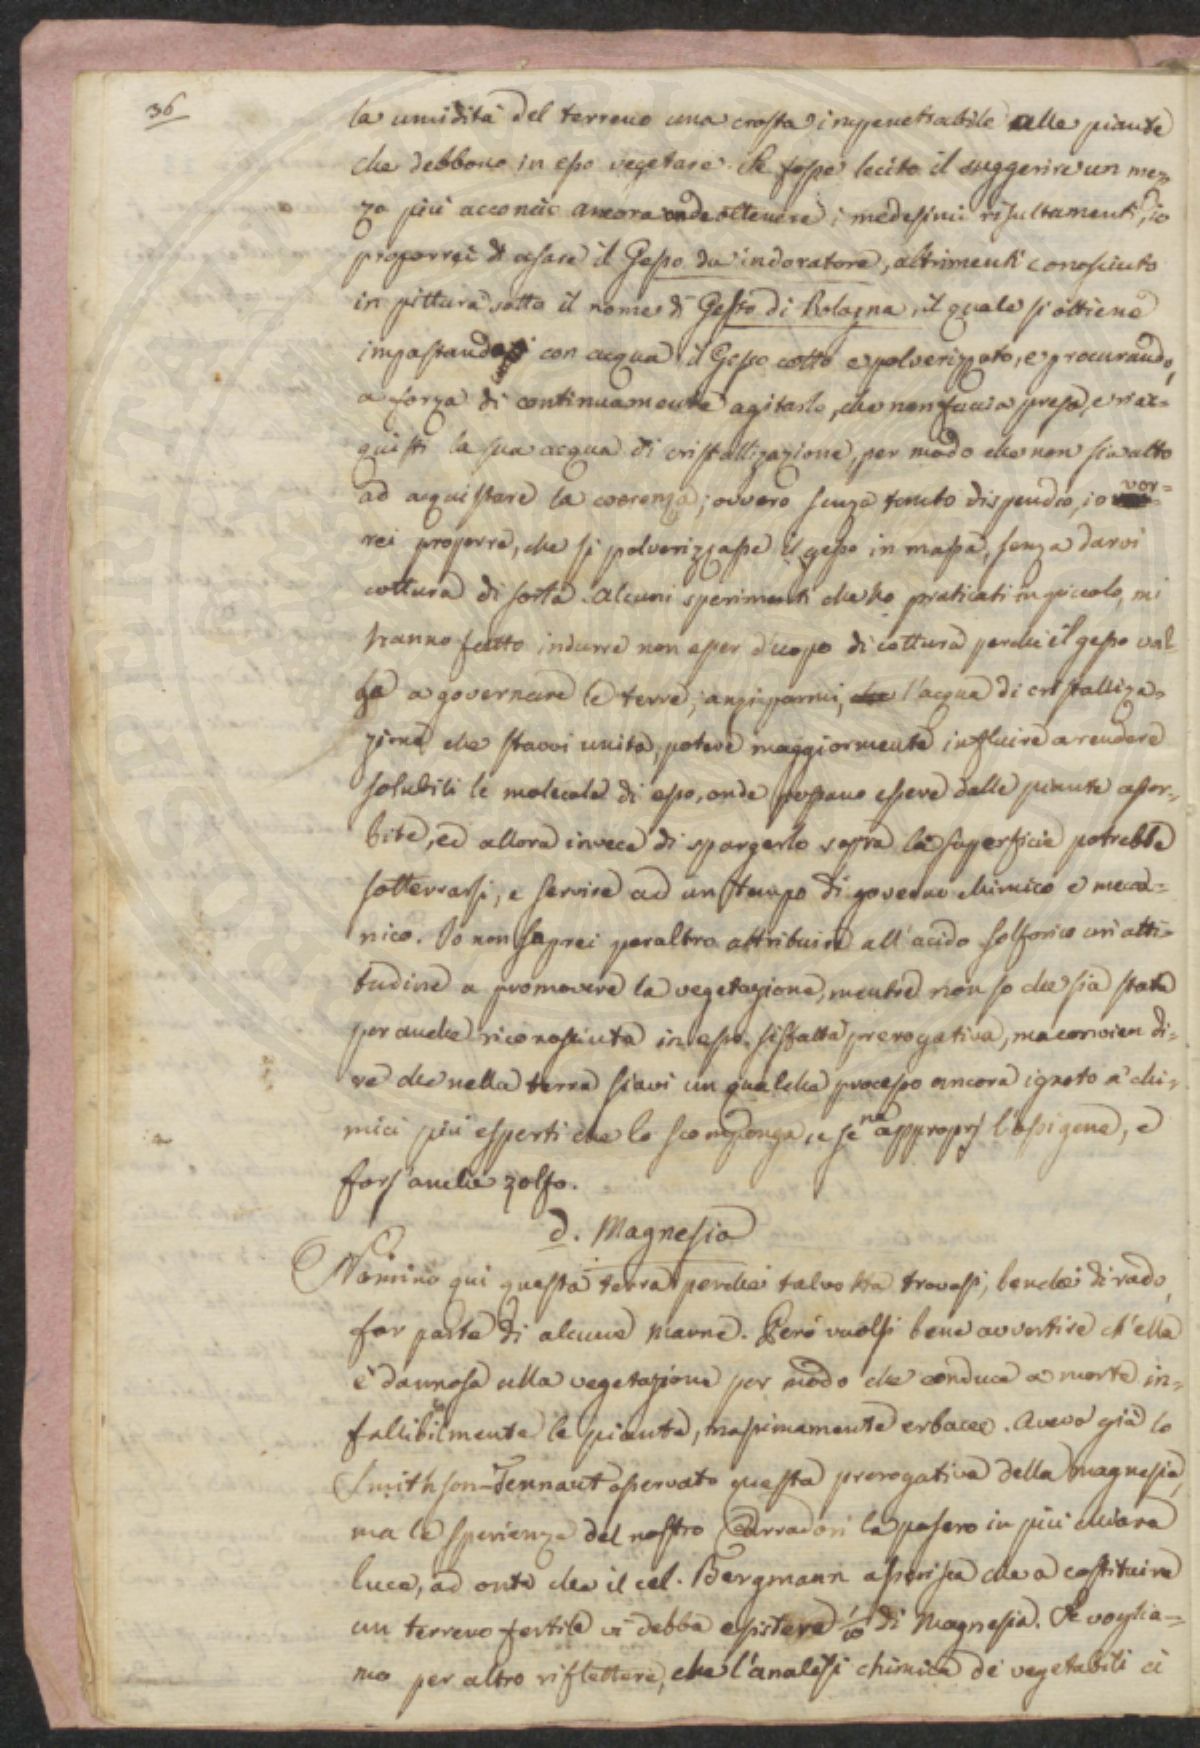 36
la umidità del terreno una crosta impenetrabile alle piante
che debbono in esso vegetare. Se fosse lecito il suggerire un mez=
zo più acconcio ancora onde ottenere i medesimi risultamenti, io
proporrei di usare il Gesso da indoratore, altrimenti conosciuto
in pittura sotto il nome di Gesso di Bologna, il quale si ottiene
impastando con acqua il Gesso cotto e polverizzato, e procurando,
a forza di continuamente agitarlo, che non faccia presa, e riac=
quisti la sua acqua di cristallizazione, per modo che non sia atto
ad acquistare la coerenza; ovvero senza tanto dispendio, io vor=
rei proporre, che si polverizzasse il gesso in massa, senza darvi
cottura di sorta. Alcuni sperimenti che ho praticati in piccolo, mi
hanno fatto indurre non esser d'uopo di cottura perchè il gesso val=
ga a governare le terre; anzi parmi, che l'acqua di cristalliza=
zione che stavvi unita, potere maggiormente influire a rendere
solubili le molecole di esso, onde possano essere dalle piante assor=
bite, ed allora invece di spargerlo sopra la superficie potrebbe
sotterrarsi, e servire ad un tempo di governo chimico e mecca=
nico. Io non saprei peraltro attribuire all'acido solforico un'atti=
tudine a promovere la vegetazione, mentre non so che sia stata
per anche riconosciuta in esso siffatta prerogativa, ma convien di=
re che nella terra siavi un qualche processo ancora ignoto a' chi=
mici più esperti che lo scomponga, e se ne approprj l'ossigene, e
fors'anche zolfo.
d. Magnesia
Nomino qui questa terra perchè talvolta trovasi, benchè di rado,
far parte di alcune marne. Però vuolsi bene avvertire ch'ella
è dannosa alla vegetazione per modo che conduce a morte in=
fallibilmente le piante, massimamente erbacee. Aveva già lo
Smithson-Tennant osservato questa prerogativa della magnesia,
ma le sperienze del nostro Carradori la posero in più chiara
luce, ad onta che il cel. Bergmann asserisca che a costituire
un terreno fertile vi debba esistere 1/10 di Magnesia. Se voglia=
mo per altro riflettere, che l'analisi chimica de' vegetabili ci